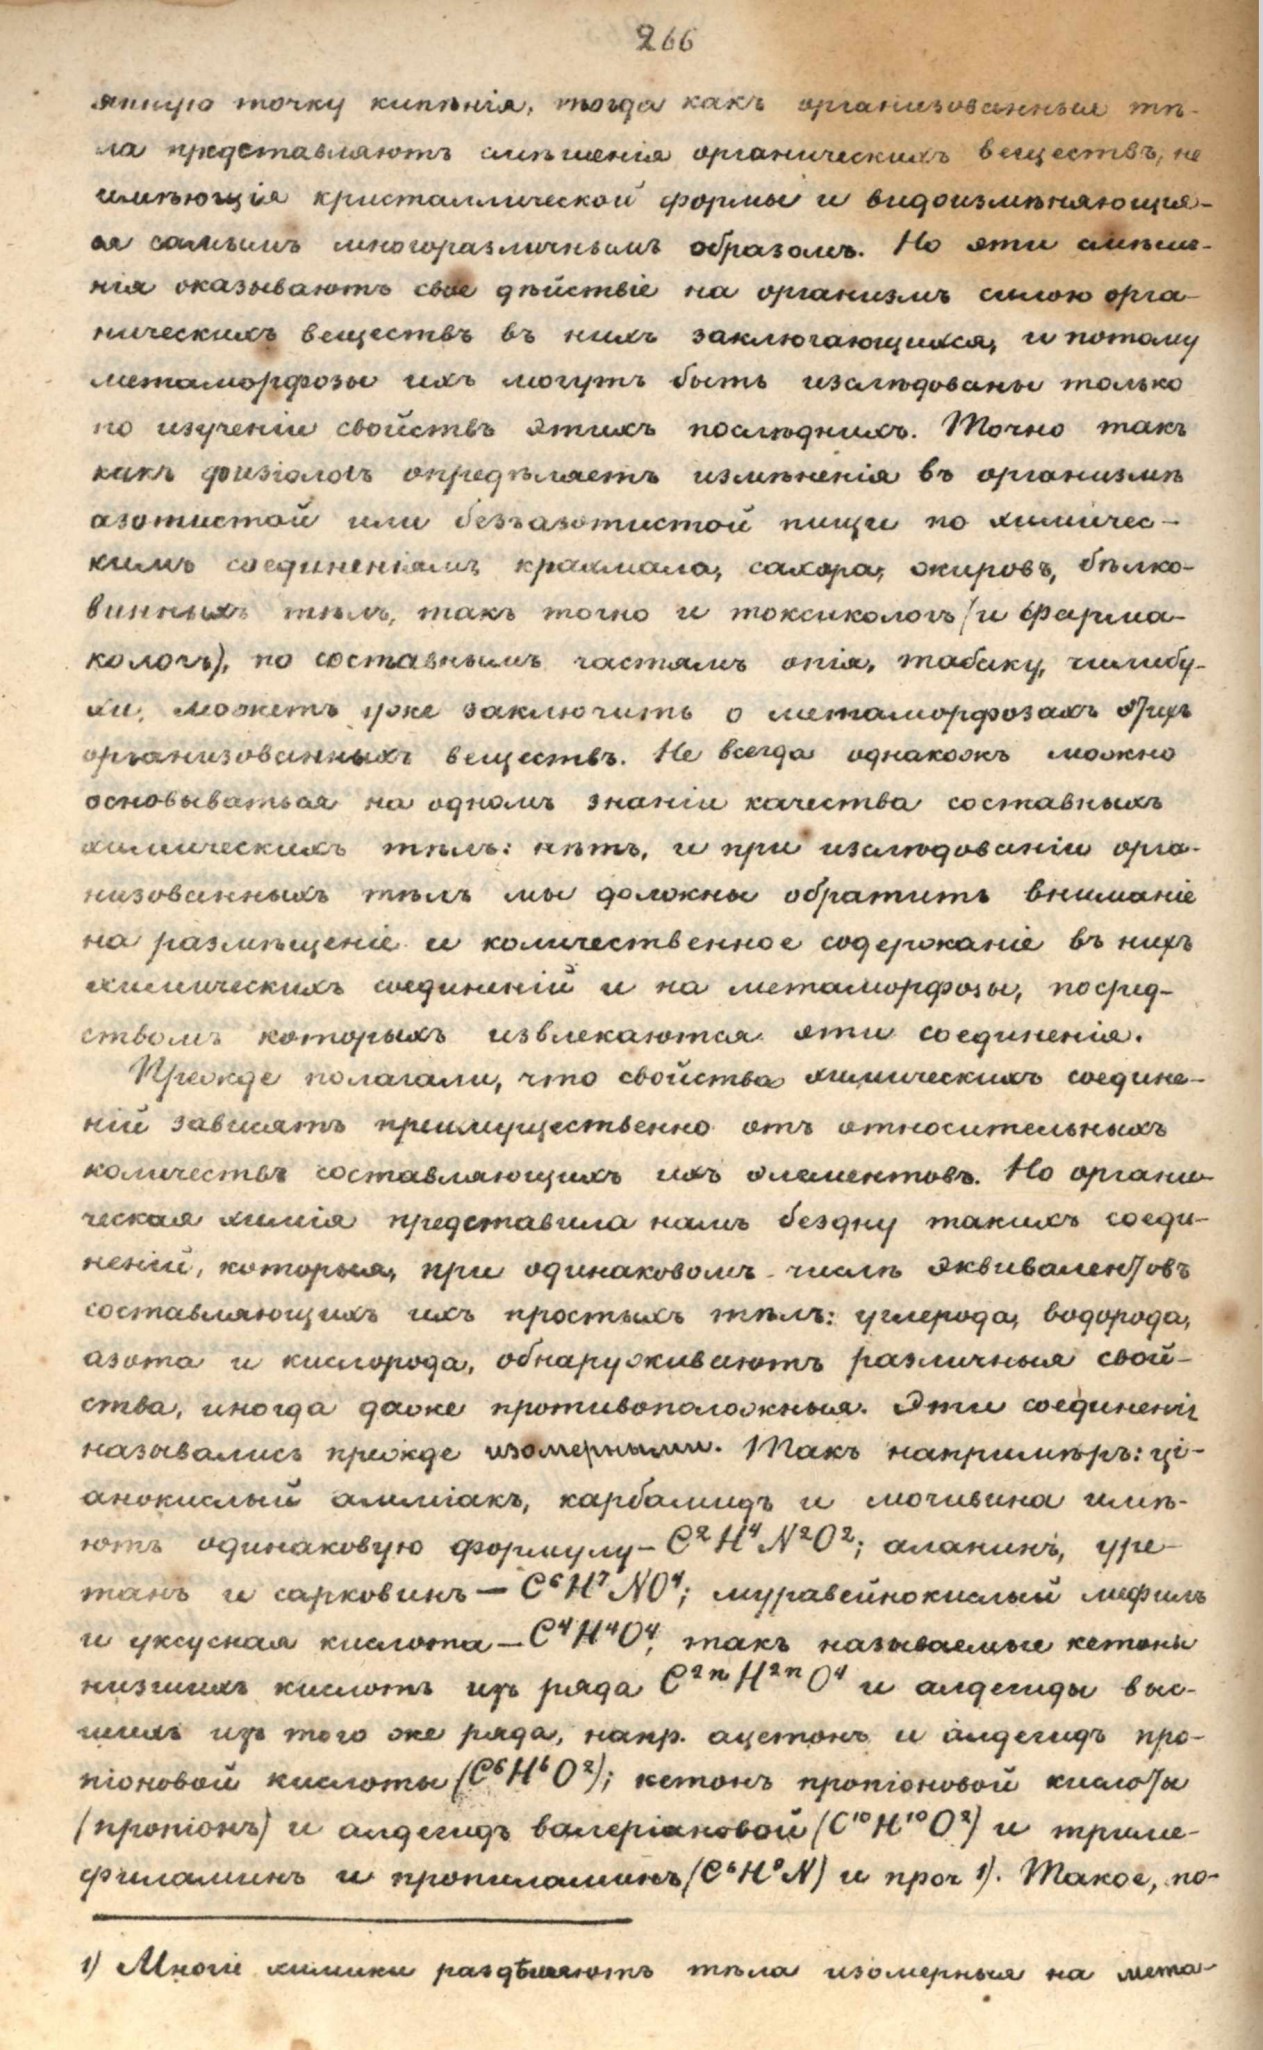 266
янную точку кипѣнія, тогда какъ организованныя тѣ-
ла представляютъ смѣшенія органическихъ веществъ, не
имѣющія кристаллической формы и видоизмѣняющія-
ся самымъ многоразличнымъ образомъ. Но эти смѣше-
нія оказываютъ свое дѣйствіе на организмъ силою орга-
ническихъ веществъ въ нихъ заключающихся, и потому
метаморфозы ихъ могутъ быть изслѣдованы только
по изученіи свойствъ этихъ послѣднихъ. Точно такъ
какъ физіологъ опредѣляетъ измѣненія въ организмѣ
азотистой или безъазотистой пищи по химичес-
кимъ соединеніямъ крахмала, сахара, жировъ, бѣлко-
винныхъ тѣлъ, такъ точно и токсикологъ (и фарма-
кологъ), по составнымъ частямъ опія, табаку, чилибу-
хи, можетъ уже заключить о метаморфозахъ этихъ
организованныхъ веществъ. Не всегда однакожъ можно
основываться на одномъ знаніи качества составныхъ
химическихъ тѣлъ: нѣтъ, и при изслѣдованіи орга-
низованныхъ тѣлъ мы должны обратить вниманіе
на размѣщеніе и количественное содержаніе въ нихъ
химическихъ соединеній и на метаморфозы, посред-
ствомъ которыхъ извлекаются эти соединенія.
Прежде полагали, что свойства химическихъ соедине-
ній зависятъ преимущественно отъ относительныхъ
количествъ составляющихъ ихъ элементовъ. Но органи-
ческая химія представила намъ бездну такихъ соеди-
неній, которыя, при одинаковомъ числѣ эквивалентовъ
составляющихъ ихъ простыхъ тѣлъ: углерода, водорода,
азота и кислорода, обнаруживаютъ различныя свой-
ства, иногда даже противоположныя. Эти соединенія
назывались прежде изомерными. Такъ напримѣръ: ці-
анокислый амміакъ, карбамидъ и мочивина имѣ-
ютъ одинаковую формулу – C²H⁴N²O²; аланинъ, уре-
танъ и сарковинъ – C⁶H⁷NO⁴; муравейнокислый мефилъ
и уксусная кислота – C⁴H⁴O⁴, такъ называемые кетоны
низшихъ кислотъ изъ ряда C²ⁿH²ⁿO⁴ и алдегиды выс-
шихъ изъ того же ряда, напр. ацетонъ и алдегидъ про-
піоновой кислоты (C⁶H⁶O²); кетонъ пропіоновой кислоты
(пропіонъ) и алдегидъ валеріановой (C¹⁰H¹⁰O²) и триме-
филаминъ и пропиламинъ (C⁶H⁹N) и проч ¹). Такое, по-
1) Многіе химики раздѣляютъ тѣла изомерныя на мета-